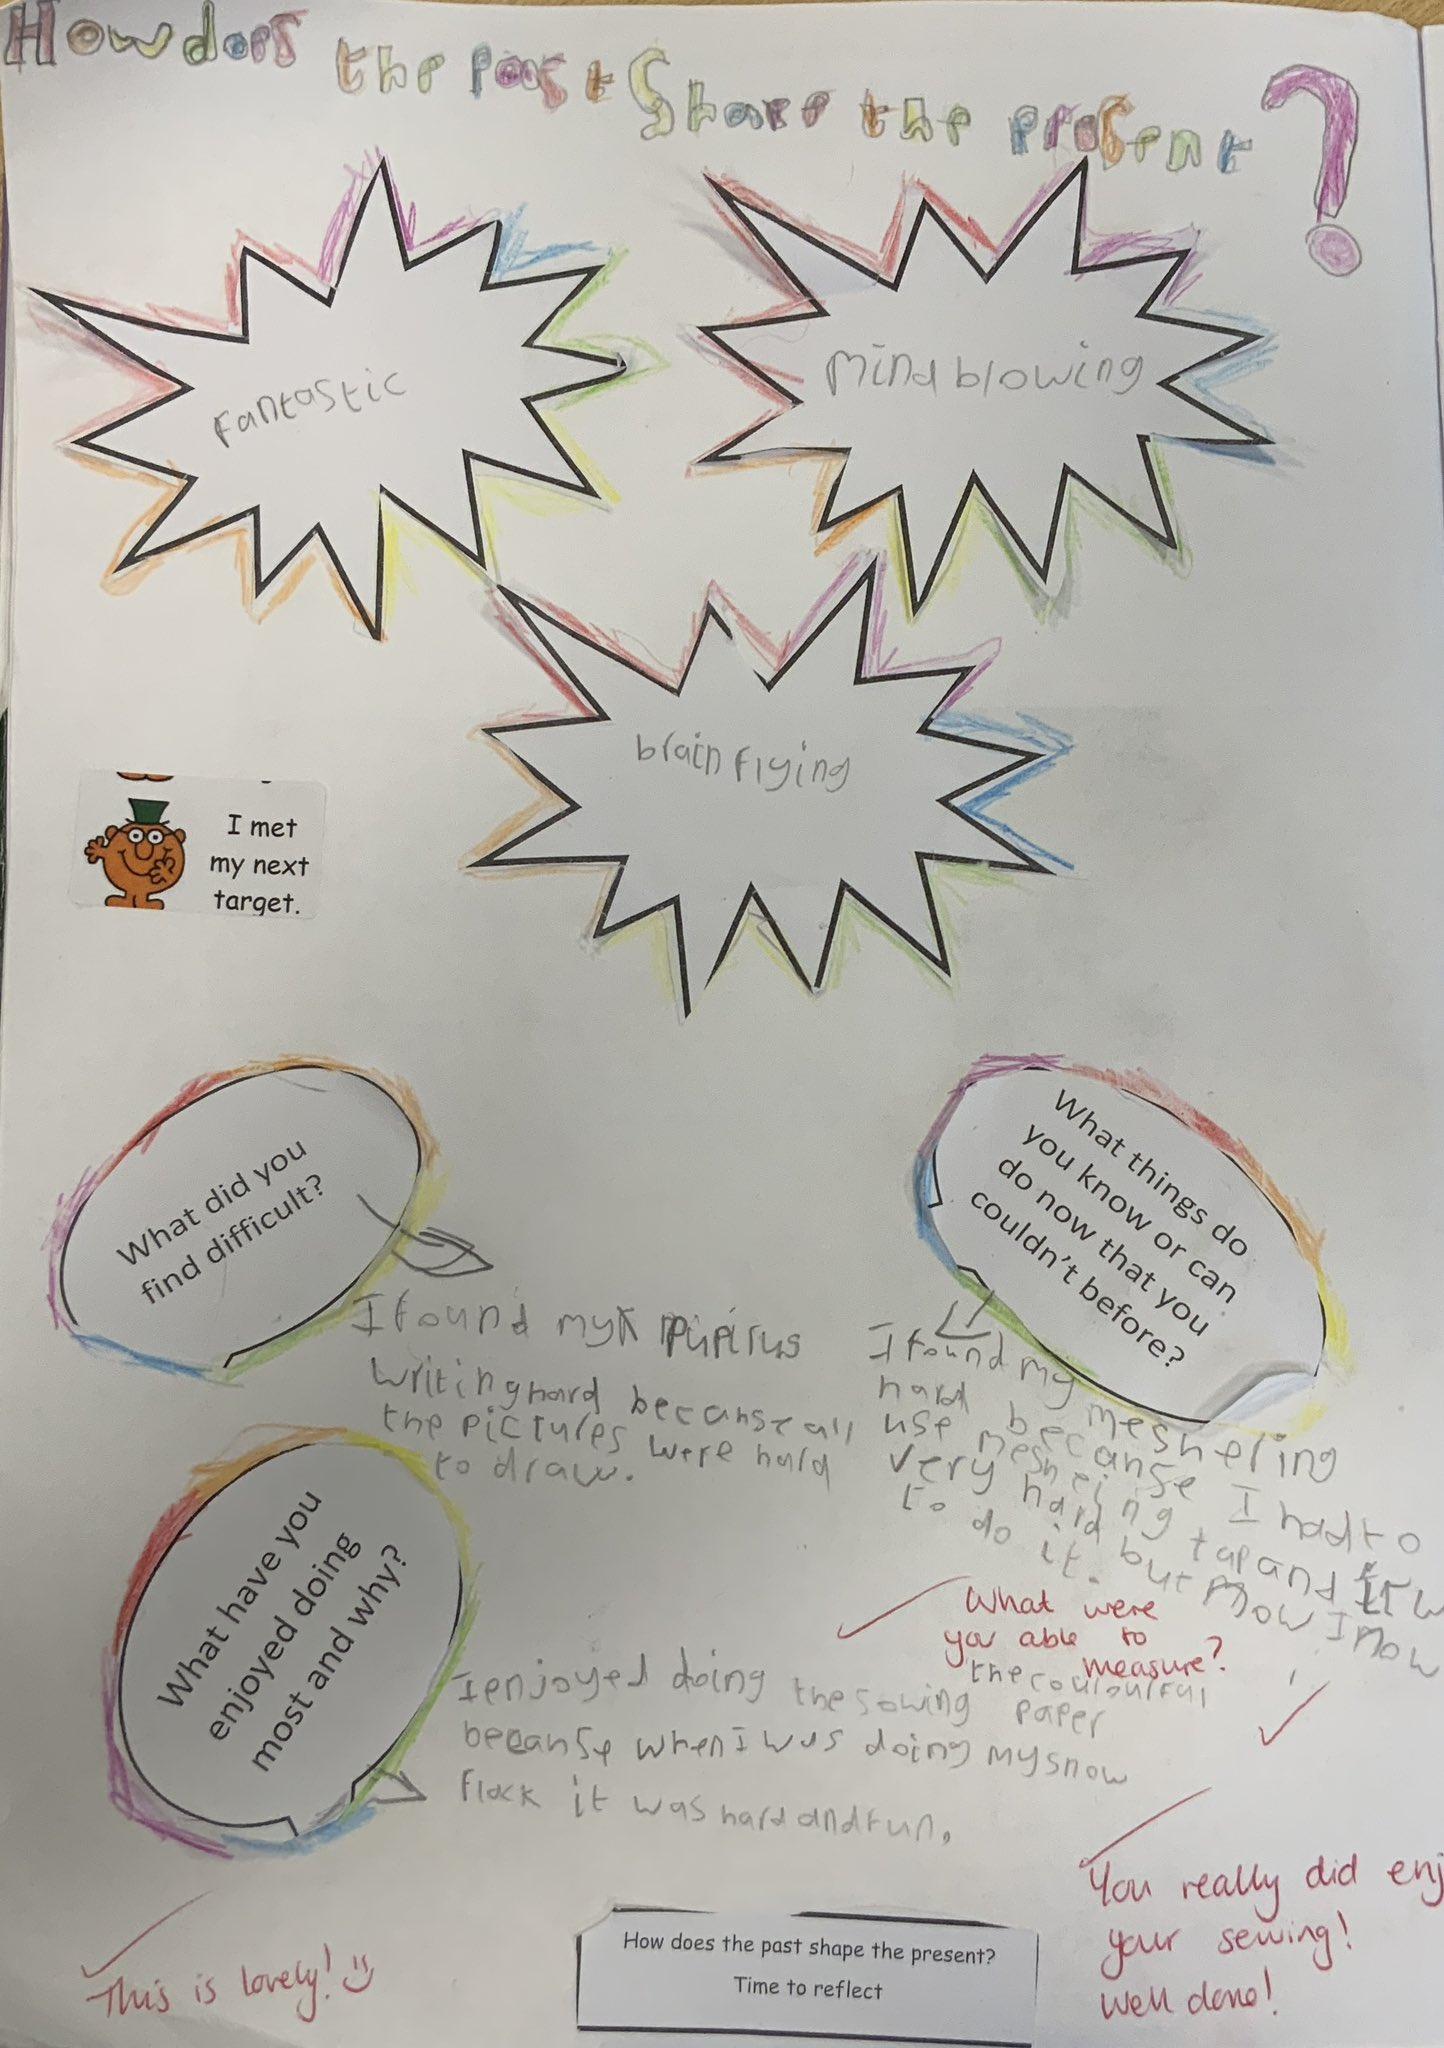 How does the past Share the present?
Fantastic
Mind blowing
brain flying
I met
my next
target.
What did you
find difficult?
I found my pupirus
writing hard because all
the pictures were hard
to draw.
What things do
you know or can
do now that you
couldn't before?
I found my meshering
hard because I had to
use mesheing tap and it w
very hard but Mow I Mow
to do it.
What were
you able to
measure?
What have you
enjoyed doing
most and why?
I enjoyed doing the sowing paper
the coulourful
because when I was doing my snow
flack it was hard and fun.
This is lovely!
How does the past shape the present?
Time to reflect
You really did enj
your sewing!
Well done!